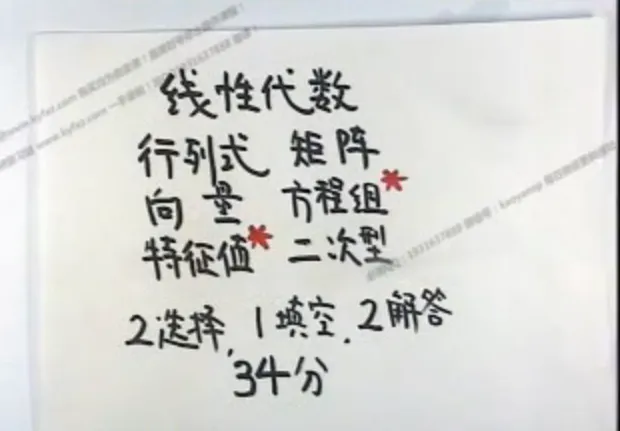 线性代数
行列式 矩阵
向量 方程组*
特征值* 二次型
2选择, 1填空, 2解答
34分